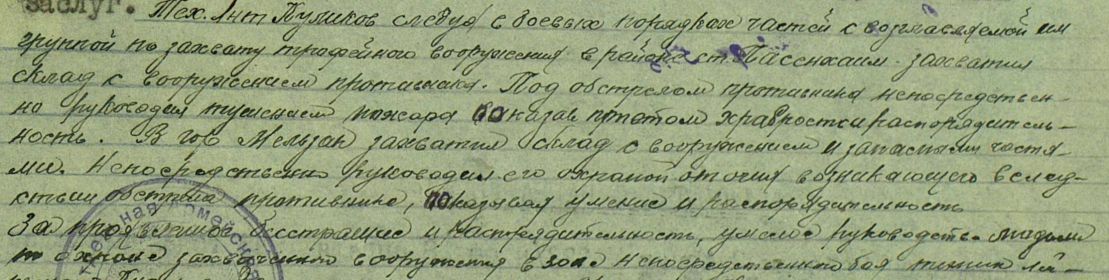 заслуг. Тех. Лнт Куликов следуя в боевых порядках частей с возглавляемой им
группой по захвату трофейного вооружения в районе ст. Пассенхаим - захватил
склад с вооружением противника. Под обстрелом противника непосредствен-
но руководил тушением пожара показав при этом храбрость и распорядитель-
ность. В гор Мельзак захватил склад с вооружением и запасными частя-
ми. Непосредственно руководил его охраной от огня возникающего вслед-
ствии обстрела противника, показывая умение и распорядительность
За проявленное бесстрашие и распорядительность, умелое руководство людьми
по охране захваченного вооружения в зоне непосредственно боя техник лей-